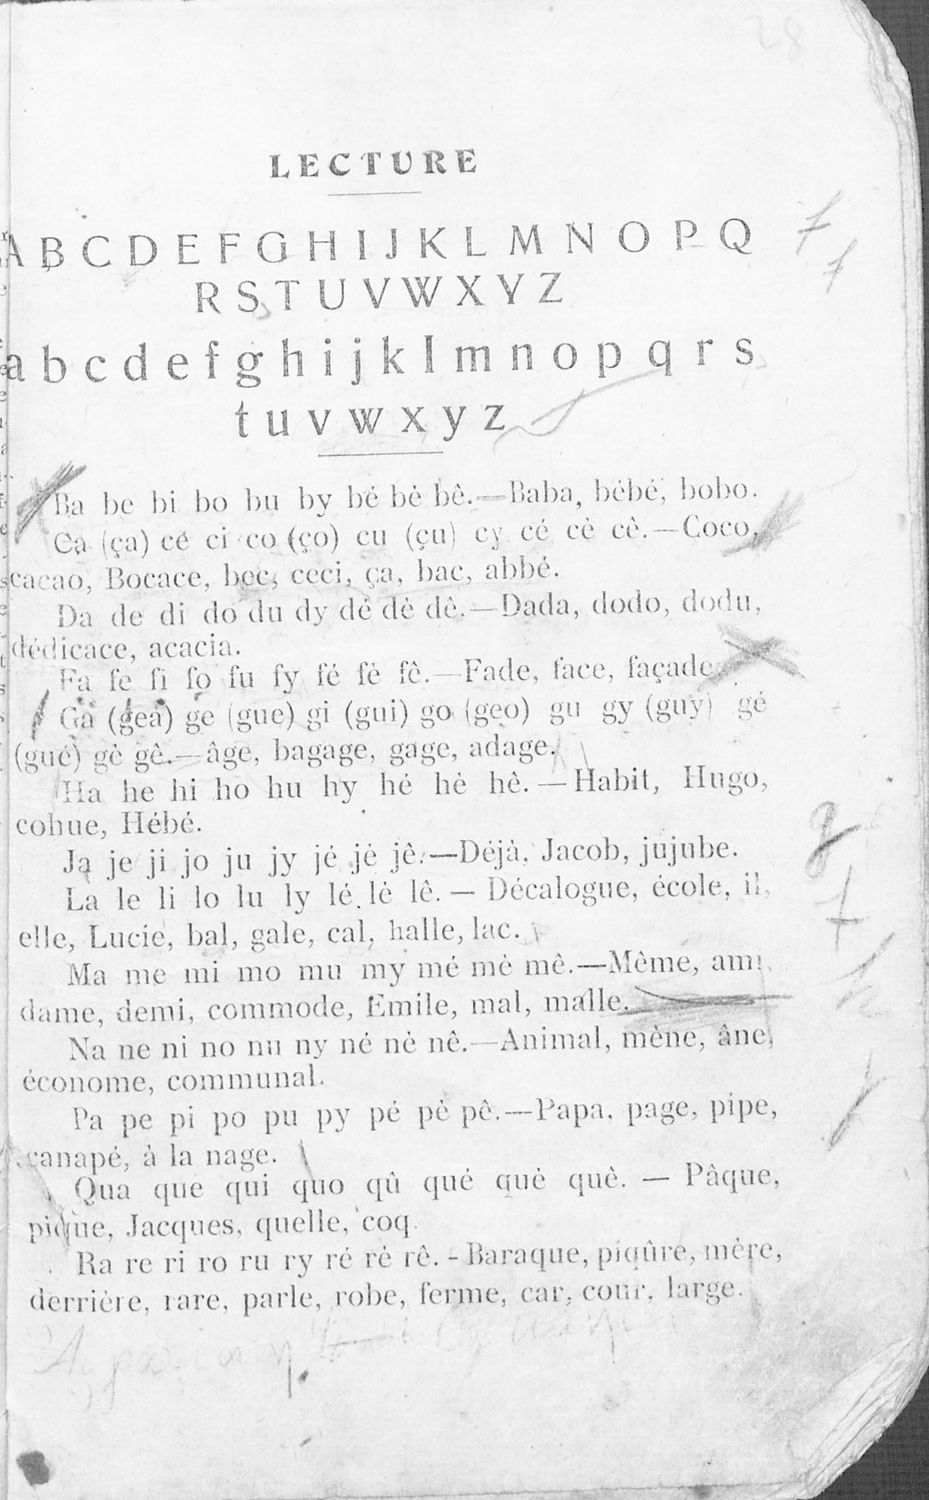 LECTURE
A B C D E F G H I J K L M N O P Q
R S T U V W X Y Z
a b c d e f g h i j k l m n o p q r s
t u v w x y z
Ba be bi bo bu by bé bè bê.—Baba, bébé, bobo.
Ca (ça) cé ci co (ço) cu (çu) cy cé cè cê.—Coco,
cacao, Bocace, bec, ceci, ça, bac, abbé.
Da de di do du dy dé dè dê.—Dada, dodo, dodu,
dédicace, acacia.
Fa fe fi fo fu fy fé fè fê.—Fade, face, façade.
Ga (gea) ge (gue) gi (gui) go (geo) gu gy (guy) gé
(gué) gè gê.—âge, bagage, gage, adage.
Ha he hi ho hu hy hé hè hê.—Habit, Hugo,
cohue, Hébé.
Ja je ji jo ju jy jé jè jê.—Déjà, Jacob, jujube.
La le li lo lu ly lé lè lê.— Décalogue, école, il,
elle, Lucie, bal, gale, cal, halle, lac.
Ma me mi mo mu my mé mè mê.—Même, ami,
dame, demi, commode, Emile, mal, malle.
Na ne ni no nu ny né nè nê.—Animal, mène, âne,
économe, communal.
Pa pe pi po pu py pé pè pê.—Papa, page, pipe,
canapé, à la nage.
Qua que qui quo qû qué què quê. — Pâque,
pique, Jacques, quelle, coq.
Ra re ri ro ru ry ré rè rê. - Baraque, piqûre, mère,
derrière, rare, parle, robe, ferme, car, cour, large.